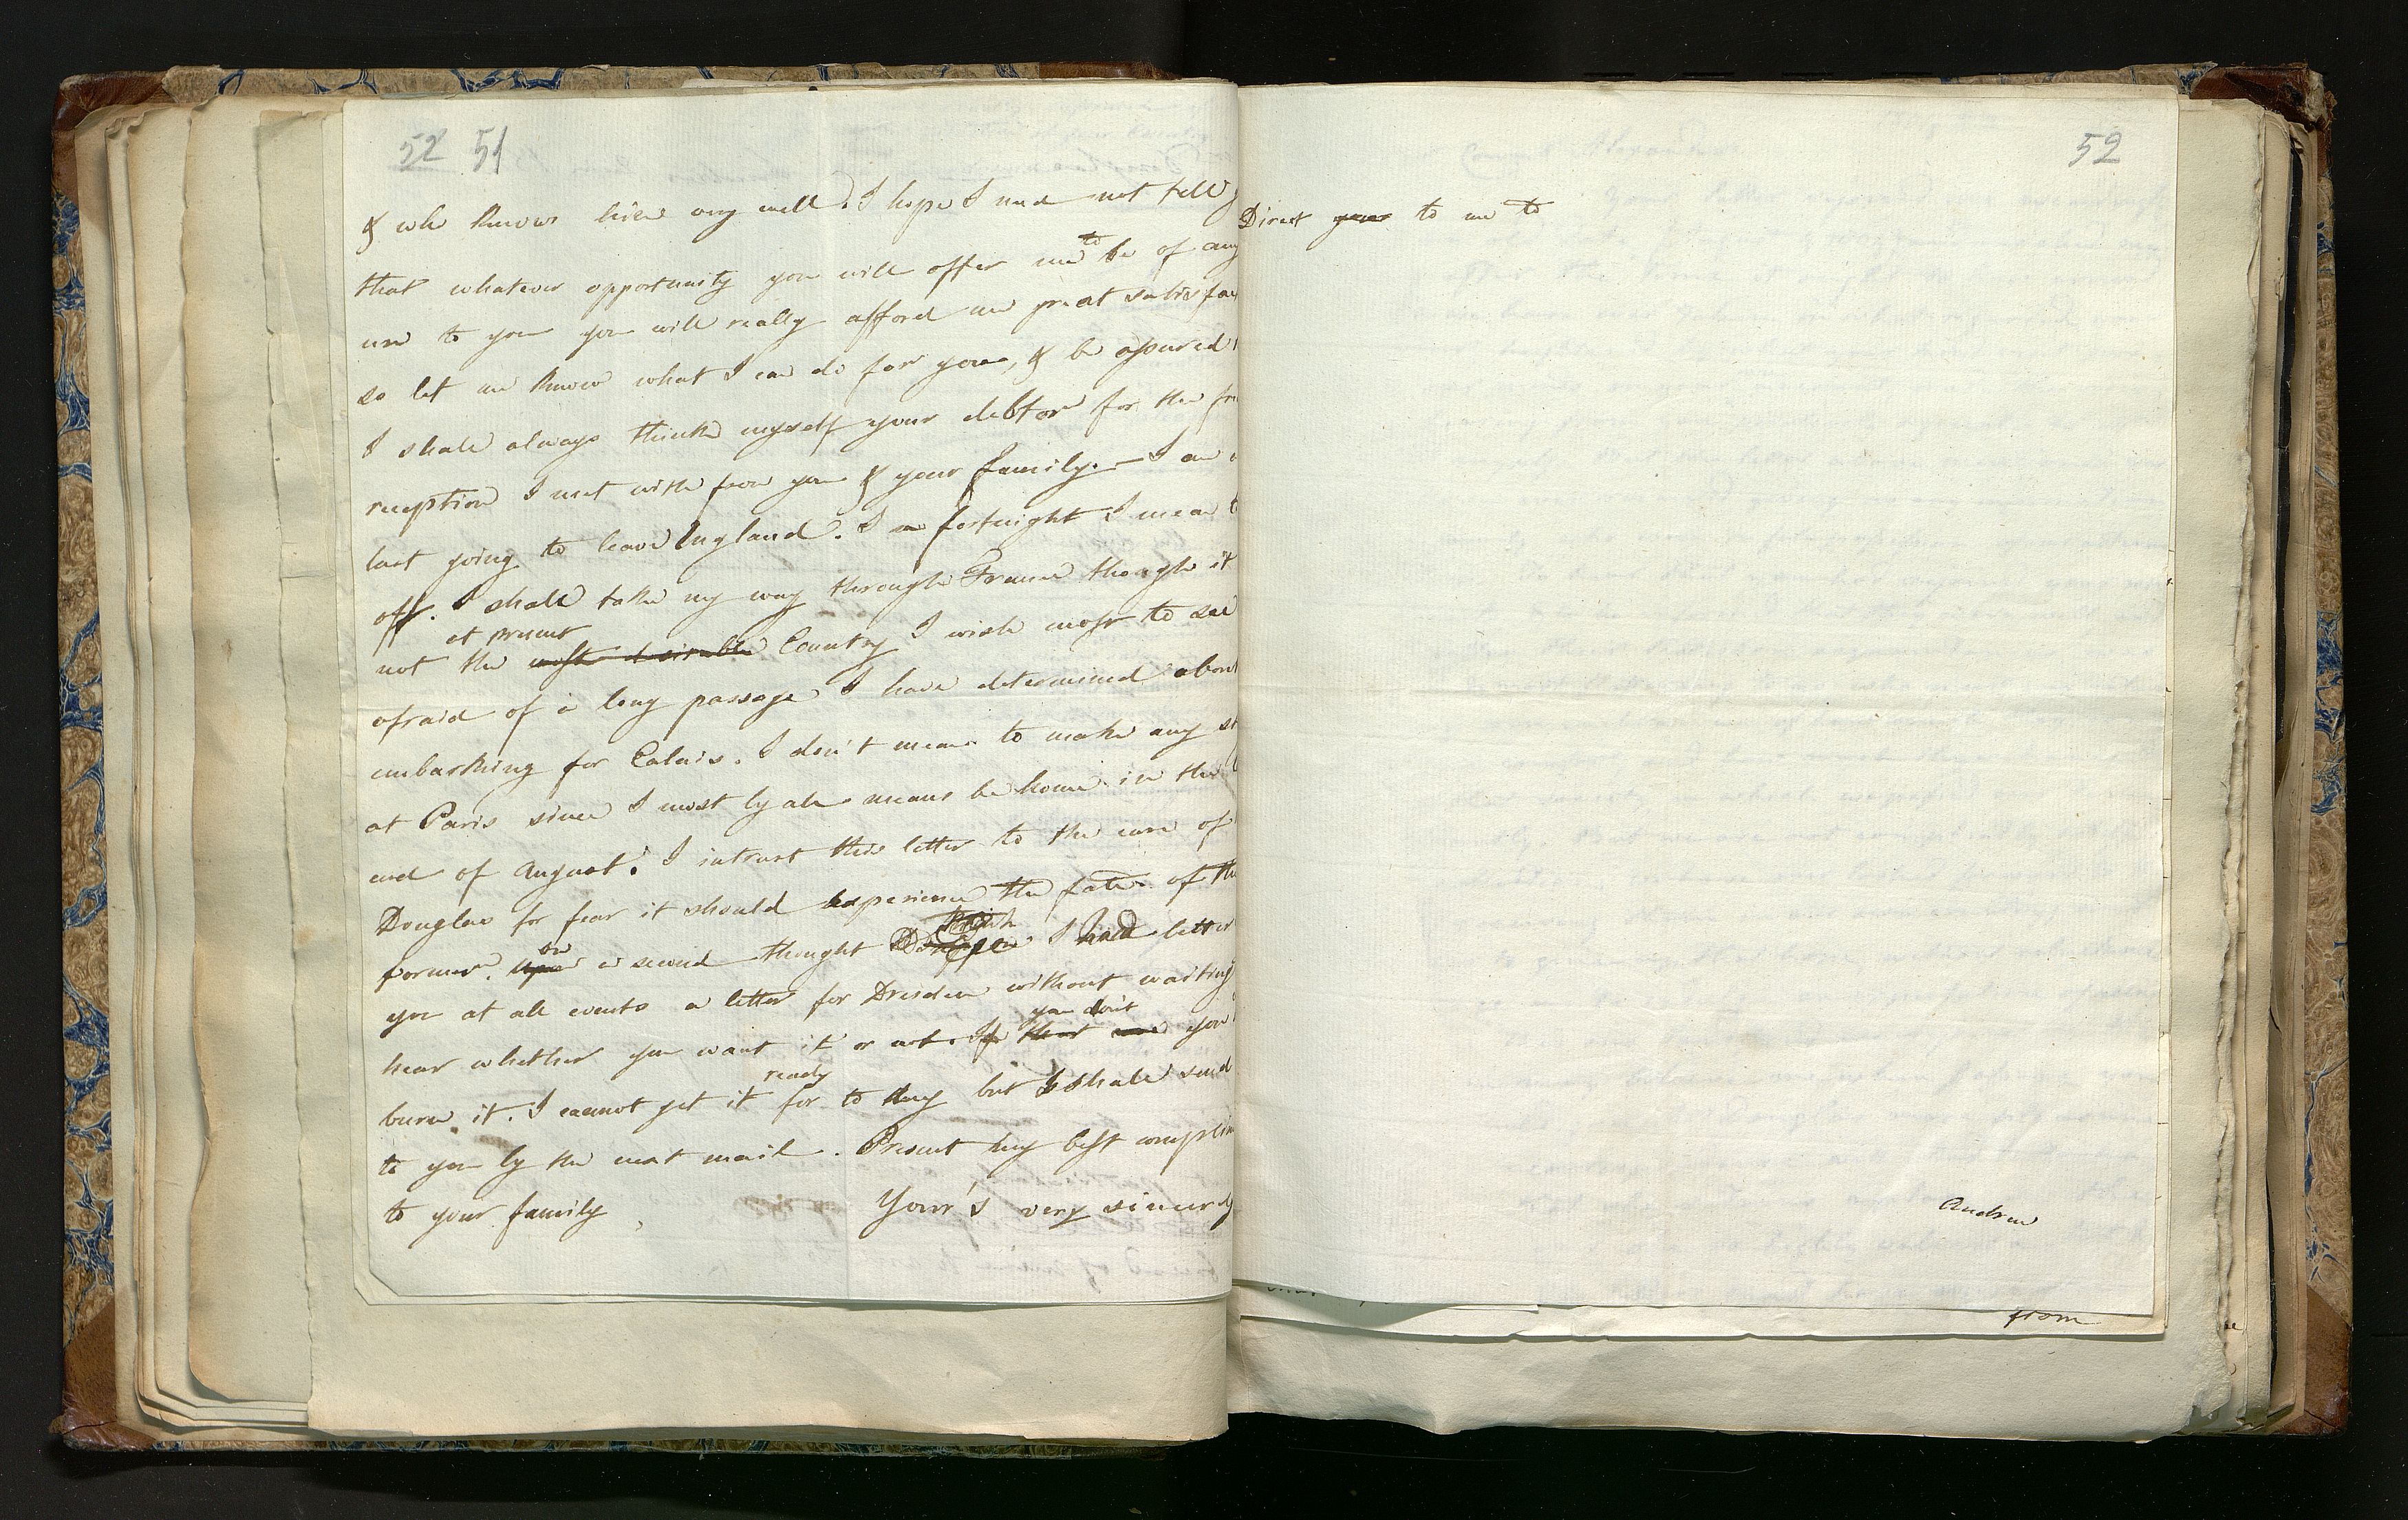 52 51
& who knows him very well. I hope I need not tell
that whatever opportunity you will offer me to be of any
use to you you will really afford me great satisfac
so let me know what I can do for you, & be assured
I shall always think myself your debtor for the fri
reception I met with from you & your family. — I am
last going to leave England. In a fortnight I mean t
off. I shall take my way through France though it
at present
not the most desirable Country I wish most to see
afraid of a long passage I have determined about
embarking for Calais. I don't mean to make any st
at Paris since I must by all means be home in the
end of August. I intrust this letter to the care of
Douglas for fear it should experience the fate of the
on
former. upon a second thought I letter
you at all events a letter for Dresden without waiting
you don't
hear whether you want it or not. If that you
ready
burn it. I cannot get it for to day but I shall send
to you by the next mail. Present my best complim
to your family
Your's very sincerely
52
Direct your to me to
Andrew
from